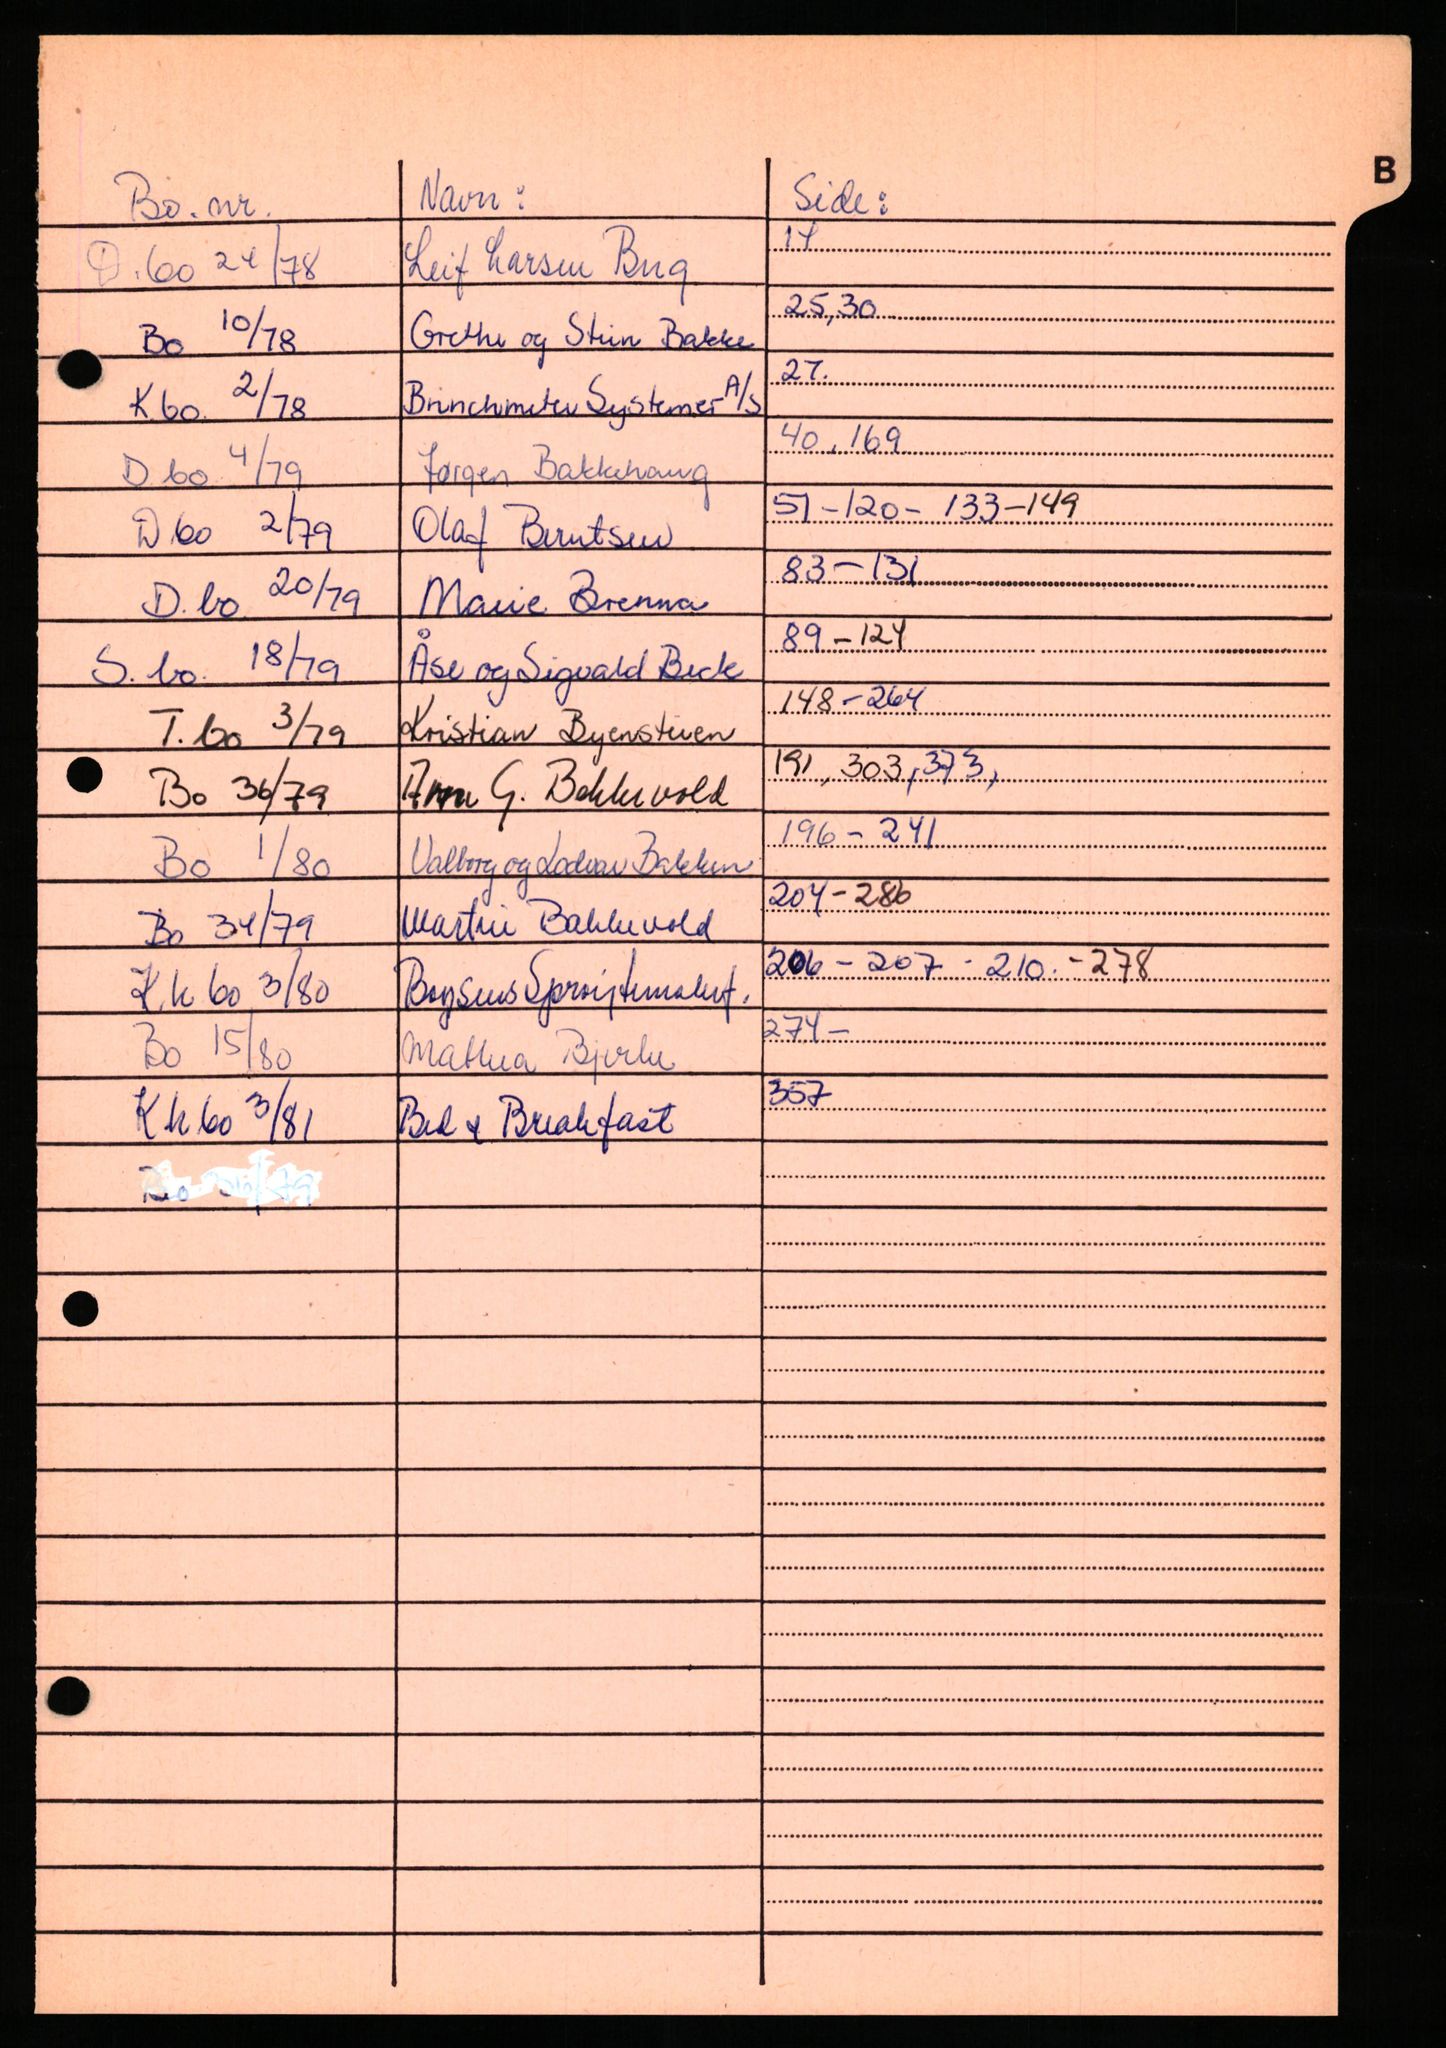 B
Bo. nr. Navn: Side:
D. bo 24/78 Leif Larsen Brug 14
Bo 10/78 Grethe og Stein Bakke 25,30
K bo. 2/78 Systemer A/S 27.
D bo 4/79 Jørgen Bakkehaug 40, 169
D bo 2/79 Olaf Berntsen 51-120- 133-149
D. bo 20/79 Marie Brenna 83-131
S. bo. 18/79 Åse og Sigvald Beck 89-124
T. bo 3/79 Kristian Byensteien 148-264
Bo 36/79 G. Bakkevold 191, 303, 373,
Bo 1/80 Valborg og Lodvar Bakken 196-241
Bo 34/79 Martin Bakkevold 204-286
K k bo 3/80 Boysens 206-207-210.-278
Bo 15/80 Mathea Bjerke 274-
K k bo 3/81 Bed & Breakfast 357
Bo